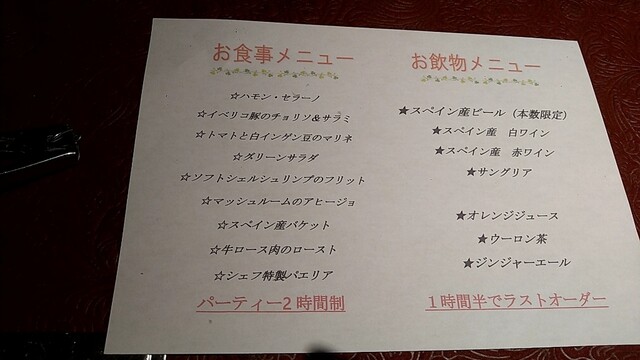 お食事メニュー
☆ハモン・セラーノ
☆イベリコ豚のチョリソ&サラミ
☆トマトと白インゲン豆のマリネ
☆グリーンサラダ
☆ソフトシェルシュリンプのフリット
☆マッシュルームのアヒージョ
☆スペイン産バケット
☆牛ロース肉のロースト
☆シェフ特製パエリア
パーティー2時間制
お飲物メニュー
★スペイン産ビール（本数限定）
★スペイン産　白ワイン
★スペイン産　赤ワイン
★サングリア
★オレンジジュース
★ウーロン茶
★ジンジャーエール
１時間半でラストオーダー